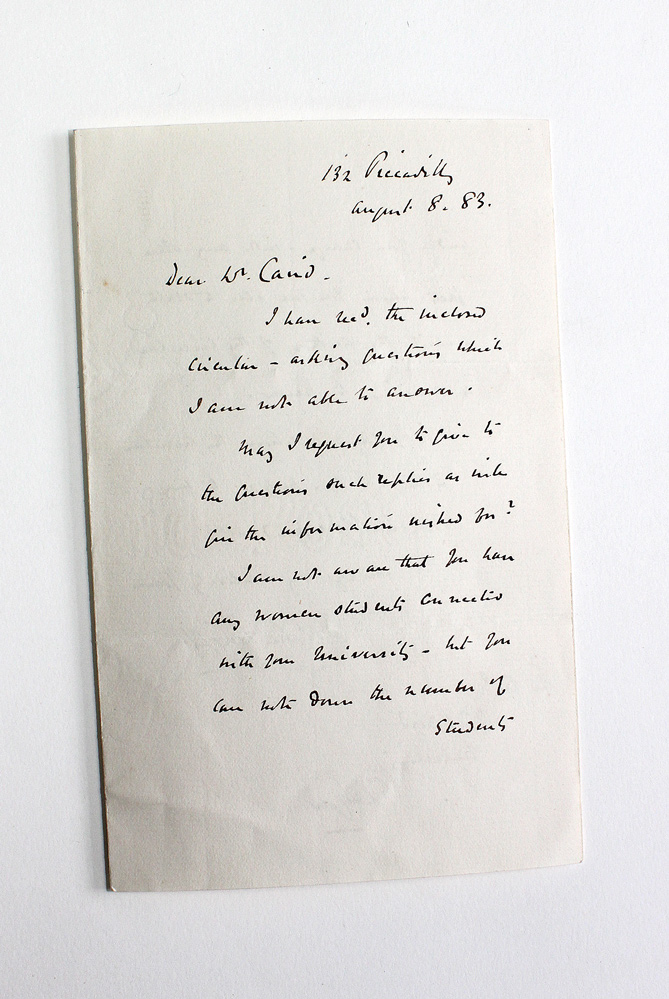 132 Piccadilly
August 8. 83.
Dear Dr. Caird.
I have recd. the inclosed
circular - asking questions which
I am not able to answer.
May I request you to give to
the questions such replies as will
give the information wished for?
I am not aware that you have
any women students connected
with your University - but you
can note down the number of
Students